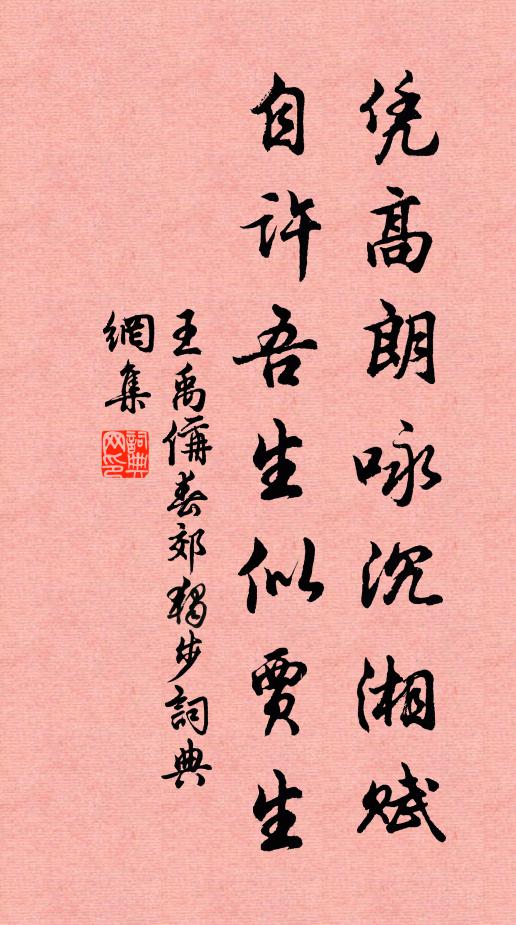 凭高朗咏沉湘赋
自许吾生似贾生
王禹偁春郊獨步詞典
網集
詞典網印